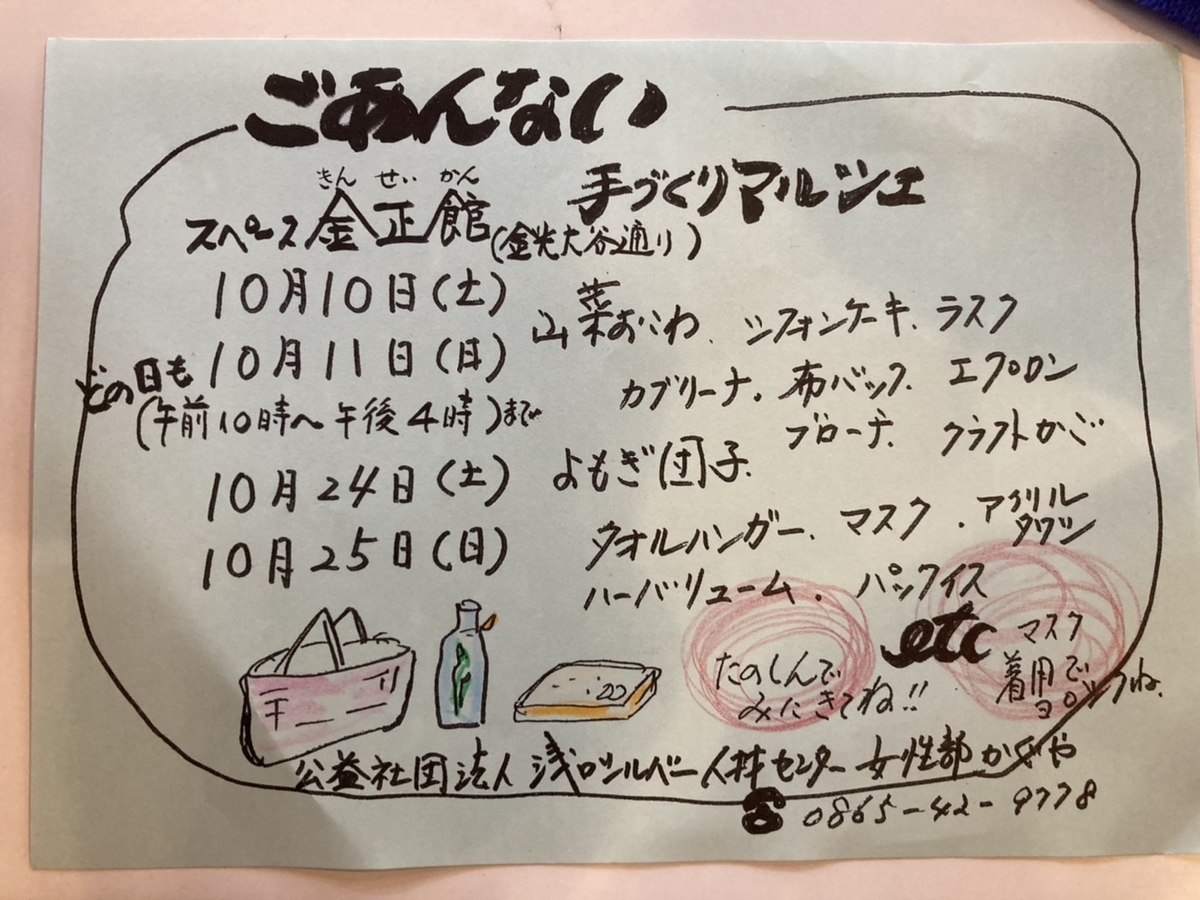 ごあんない
きん せい かん
スペース 金正館 (金光大谷通り)
手づくりマルシェ
10月10日(土)
10月11日(日)
どの日も
(午前10時〜午後4時)まで
10月24日(土)
10月25日(日)
山菜おこわ、シフォンケーキ、ラスク
カブリーナ、布バック、エプロン
ブローチ、クラフトかご
よもぎ団子、
タオルハンガー、マスク、アクリルタワシ
ハーバリューム、パックイス
etc
たのしんで
みにきてね!!
マスク
着用で
ヨロシクね。
公益社団法人 浅口シルバー人材センター 女性部かぐや
☎ 0865-42-9778